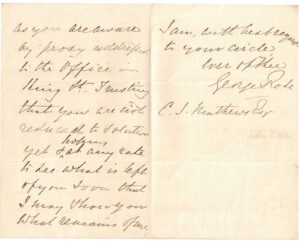 as you are aware
by proxy addressed
to the Office in
King St. Trusting
that you are not
reduced to solution
yet & hoping at any rate
to see what is left
of you soon that
I may show you
what remains of me
I am, with best regards
to your circle,
Ever
George
C. J. Mathews Esq